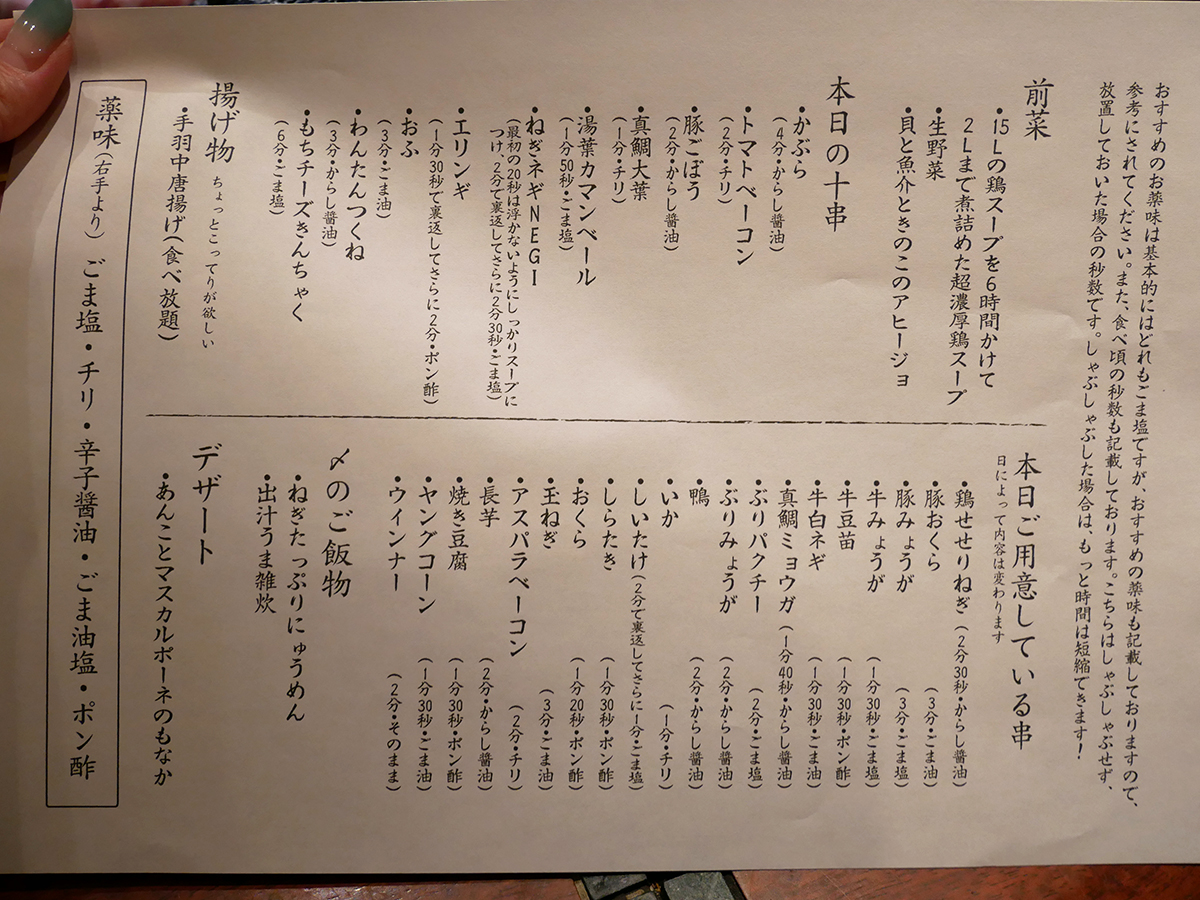 おすすめのお薬味は基本的にはどれもごま塩ですが、おすすめの薬味も記載しておりますので、
参考にされてください。また、食べ頃の秒数も記載しております。こちらはしゃぶしゃぶせず、
放置しておいた場合の秒数です。しゃぶしゃぶした場合は、もっと時間は短縮できます!
前菜
・15Lの鶏スープを6時間かけて
2Lまで煮詰めた超濃厚鶏スープ
・生野菜
・貝と魚介ときのこのアヒージョ
本日の十串
・かぶら
(4分・からし醤油)
・トマトベーコン
(2分・チリ)
・豚ごぼう
(2分・からし醤油)
・真鯛大葉
(1分・チリ)
・湯葉カマンベール
(1分50秒・ごま塩)
・ねぎネギNEGI
(最初の20秒は浮かないようにしっかりスープに
つけ、2分で裏返してさらに2分30秒・ごま塩)
・エリンギ
(1分30秒で裏返してさらに2分・ポン酢)
・おふ
(3分・ごま油)
・わんたんつくね
(3分・からし醤油)
・もちチーズきんちゃく
(6分・ごま塩)
揚げ物 ちょっとこってりが欲しい
・手羽中唐揚げ(食べ放題)
本日ご用意している串
日によって内容は変わります
・鶏せせりねぎ(2分30秒・からし醤油)
・豚おくら(3分・ごま油)
・豚みょうが(3分・ごま塩)
・牛みょうが(1分30秒・ごま塩)
・牛豆苗(1分30秒・ポン酢)
・牛白ネギ(1分30秒・ごま油)
・真鯛ミョウガ(1分40秒・からし醤油)
・ぶりパクチー(2分・ごま塩)
・ぶりみょうが(2分・からし醤油)
・鴨(2分・からし醤油)
・いか(1分・チリ)
・しいたけ(2分で裏返してさらに1分・ごま塩)
・しらたき(1分30秒・ポン酢)
・おくら(1分20秒・ポン酢)
・玉ねぎ(3分・ごま油)
・アスパラベーコン(2分・チリ)
・長芋(2分・からし醤油)
・焼き豆腐(1分30秒・ポン酢)
・ヤングコーン(1分30秒・ごま油)
・ウインナー(2分・そのまま)
〆のご飯物
・ねぎたっぷりにゅうめん
・出汁うま雑炊
デザート
・あんことマスカルポーネのもなか
薬味(右手より) ごま塩・チリ・辛子醤油・ごま油塩・ポン酢